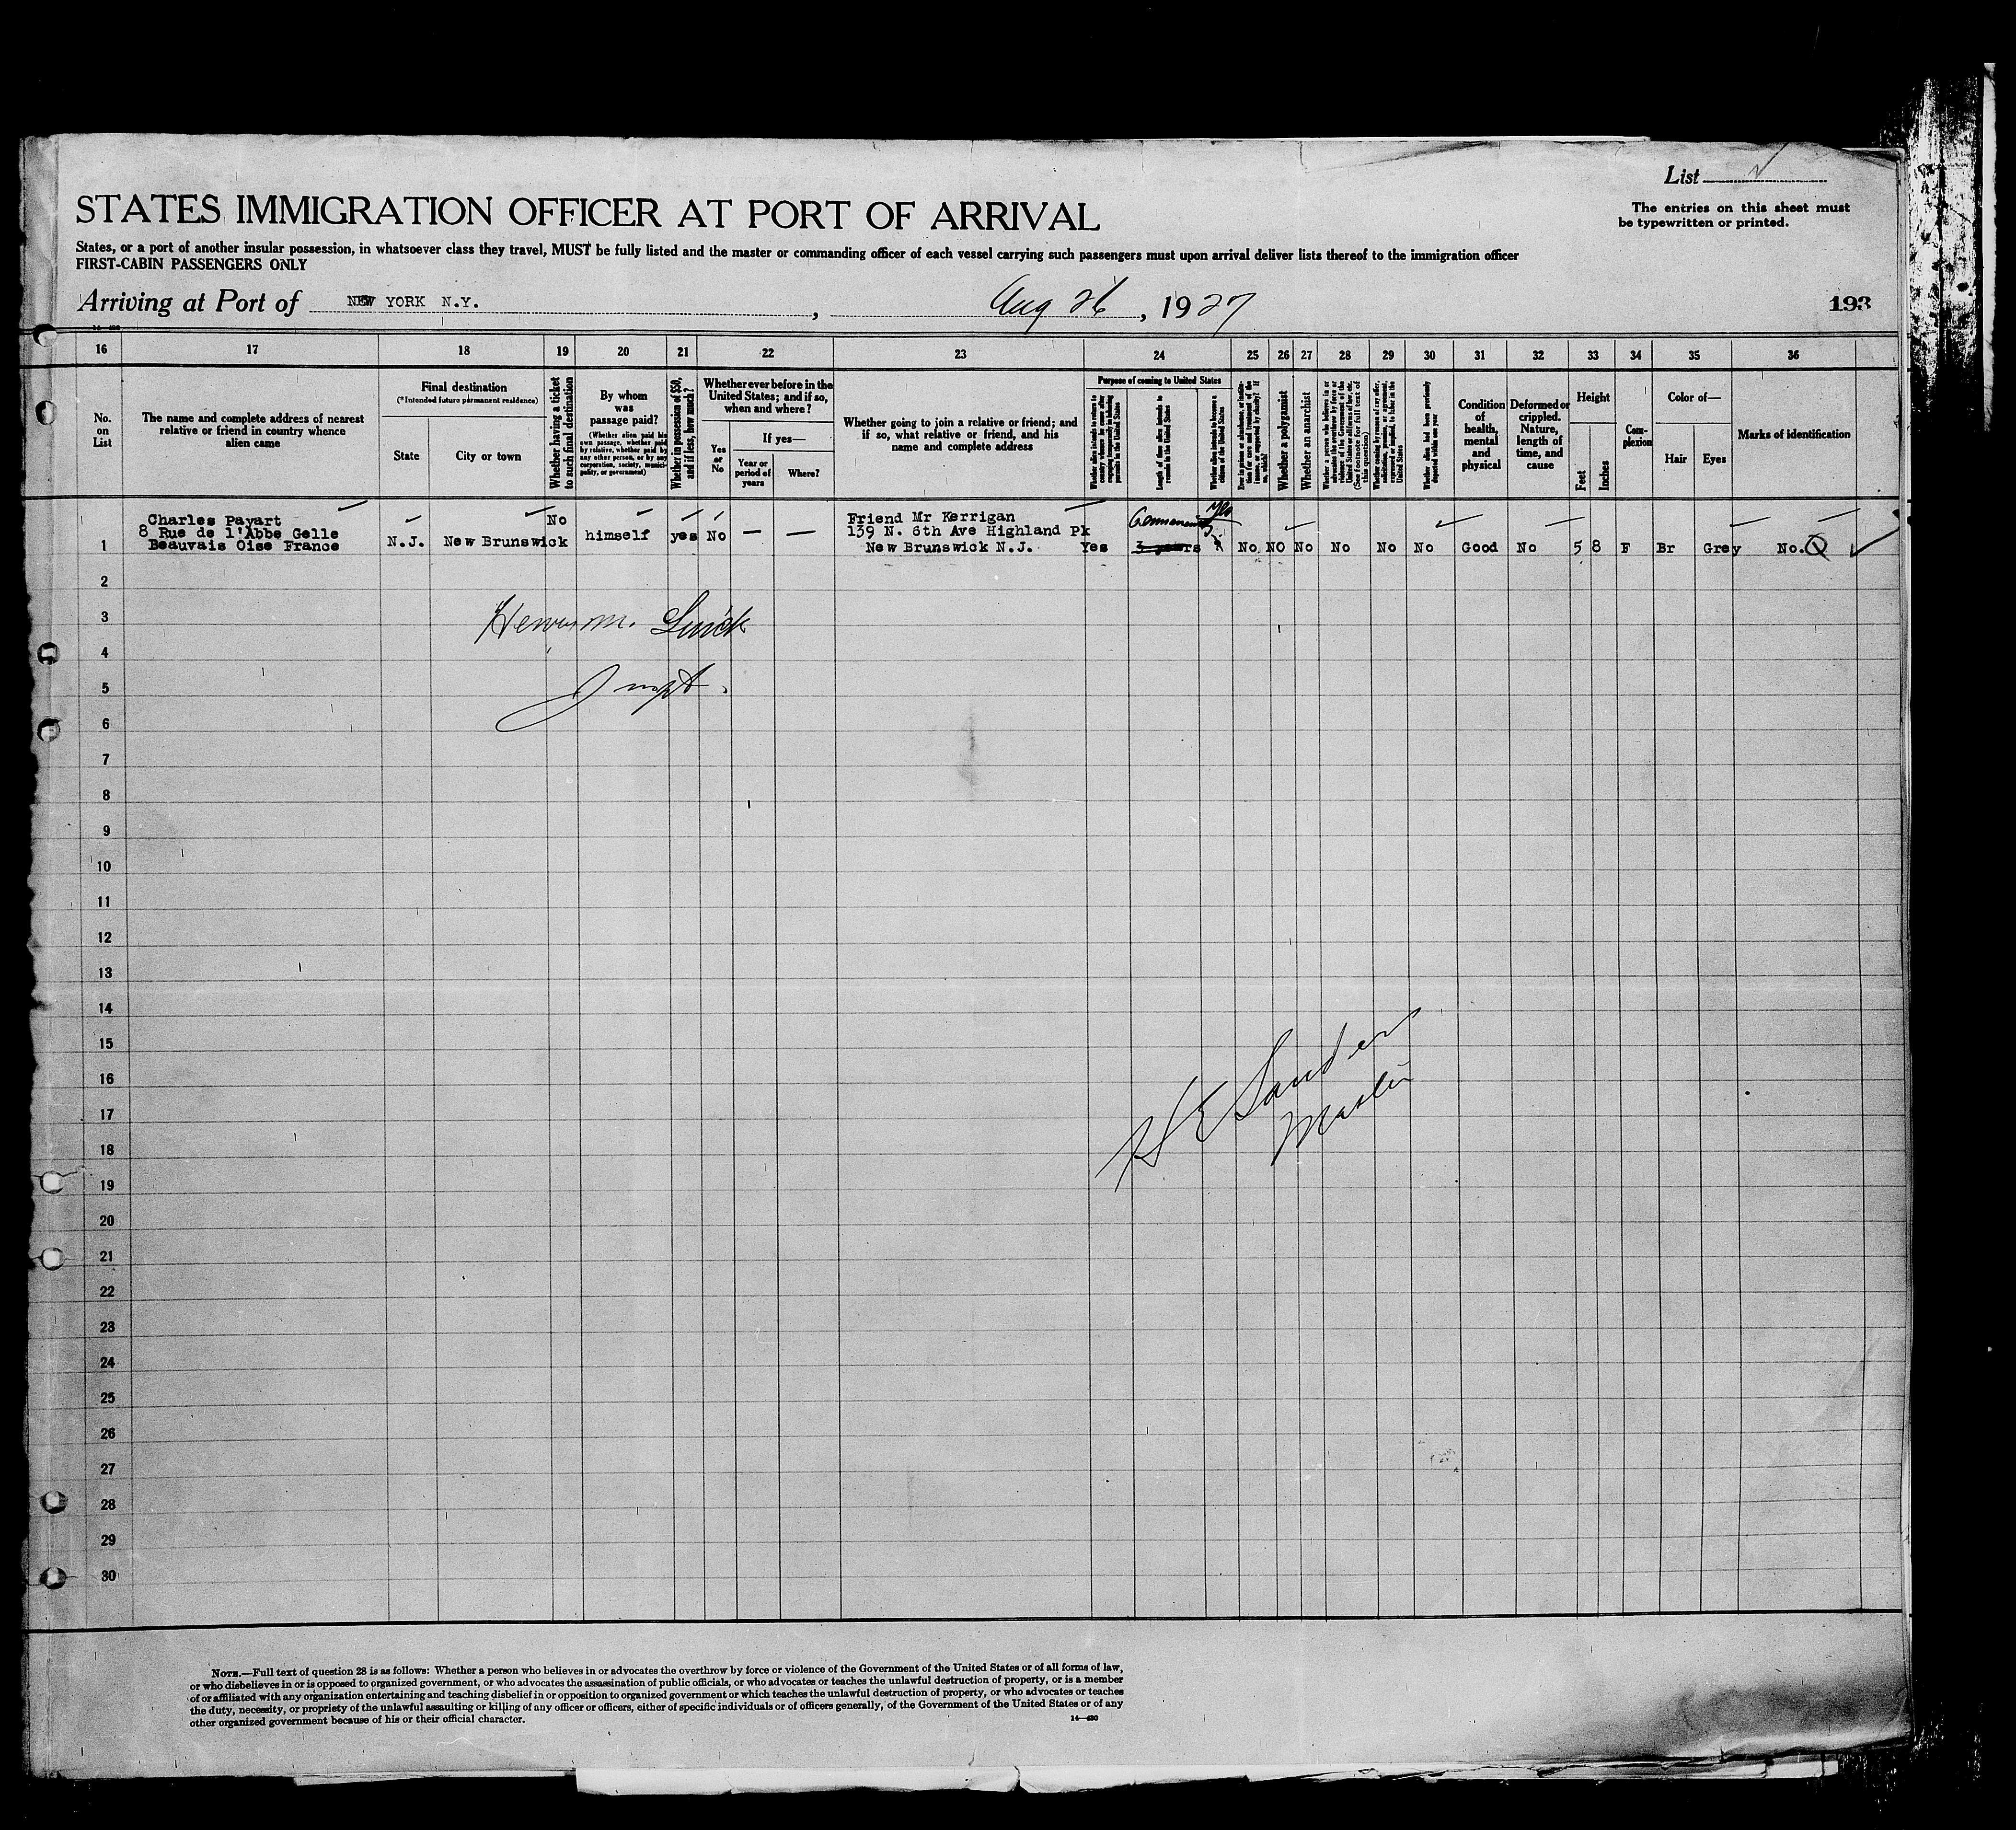 List
The entries on this sheet must
be typewritten or printed.
STATES IMMIGRATION OFFICER AT PORT OF ARRIVAL
States, or a port of another insular possession, in whatsoever class they travel, MUST be fully listed and the master or commanding officer of each vessel carrying such passengers must upon arrival deliver lists thereof to the immigration officer
FIRST-CABIN PASSENGERS ONLY
Arriving at Port of NEW YORK N.Y. , Aug 26, 1927
193
14—430
16 17 18 19 20 21 22 23 24 25 26 27 28 29 30 31 32 33 34 35 36
No.
on
List
The name and complete address of nearest
relative or friend in country whence
alien came
Final destination
(*Intended future permanent residence)
State
City or town
Whether having a ticket
to such final destination
By whom
was
passage paid?
(Whether alien paid his
own passage, whether paid
by relative, whether paid by
any other person, or by any
corporation, society, munici-
pality, or government)
Whether in possession of $50,
and if less, how much?
Whether ever before in the
United States; and if so,
when and where?
Yes
or
No
If yes—
Year or
period of
years
Where?
Whether going to join a relative or friend; and
if so, what relative or friend, and his
name and complete address
Purpose of coming to United States
Whether alien intends to return to
country whence he came after
engaging temporarily in laboring
pursuits in the United States
Length of time alien intends to
remain in the United States
Whether alien intends to become a
citizen of the United States
Ever in prison or almshouse, or institu-
tion for care and treatment of the
insane, or supported by charity? If
so, which?
Whether a polygamist
Whether an anarchist
Whether a person who believes in or
advocates the overthrow by force or
violence of the Government of the
United States or all forms of law, etc.
(See footnote for full text of
this question)
Whether coming by reason of any offer,
solicitation, promise, or agreement,
expressed or implied, to labor in the
United States
Whether alien had been previously
deported within one year
Condition
of
health,
mental
and
physical
Deformed or
crippled.
Nature,
length of
time, and
cause
Height
Feet
Inches
Com-
plexion
Color of—
Hair
Eyes
Marks of identification
1
Charles Payart
8 Rue de l'Abbe Gelle
Beauvais Oise France
N.J.
New Brunswick
No
himself
yes
No
— —
Friend Mr Kerrigan
139 N. 6th Ave Highland Pk
New Brunswick N.J.
Yes
Permanently
3 years
Yes
No NO No No No No Good No 5 8 F Br Grey No.
2
3
4
5
Inspt.
6
7
8
9
10
11
12
13
14
15
16
17
18
H E Sanders
Master
19
20
21
22
23
24
25
26
27
28
29
30
NOTE.—Full text of question 28 is as follows: Whether a person who believes in or advocates the overthrow by force or violence of the Government of the United States or of all forms of law,
or who disbelieves in or is opposed to organized government, or who advocates the assassination of public officials, or who advocates or teaches the unlawful destruction of property, or is a member
of or affiliated with any organization entertaining and teaching disbelief in or opposition to organized government or which teaches the unlawful destruction of property, or who advocates or teaches
the duty, necessity, or propriety of the unlawful assaulting or killing of any officer or officers, either of specific individuals or of officers generally, of the Government of the United States or of any
other organized government because of his or their official character.
14—430